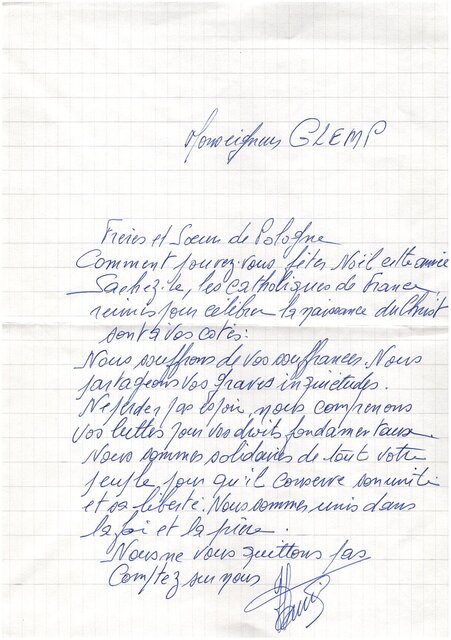 Monseigneur GLEMP
Frères et Sœurs de Pologne
Comment pouvez-vous fêter Noël cette année
Sachez-le, les catholiques de France,
réunis pour célébrer la naissance du Christ
sont à vos cotés:
Nous souffrons de vos souffrances. Nous
partageons vos graves inquiétudes.
Ne perdez pas espoir, nous comprenons
vos luttes pour vos droits fondamentaux.
Nous sommes solidaires de tout votre
peuple pour qu'il conserve son unité
et sa liberté. Nous sommes unis dans
la foi et la prière.
Nous ne vous quittons pas
Comptez sur nous